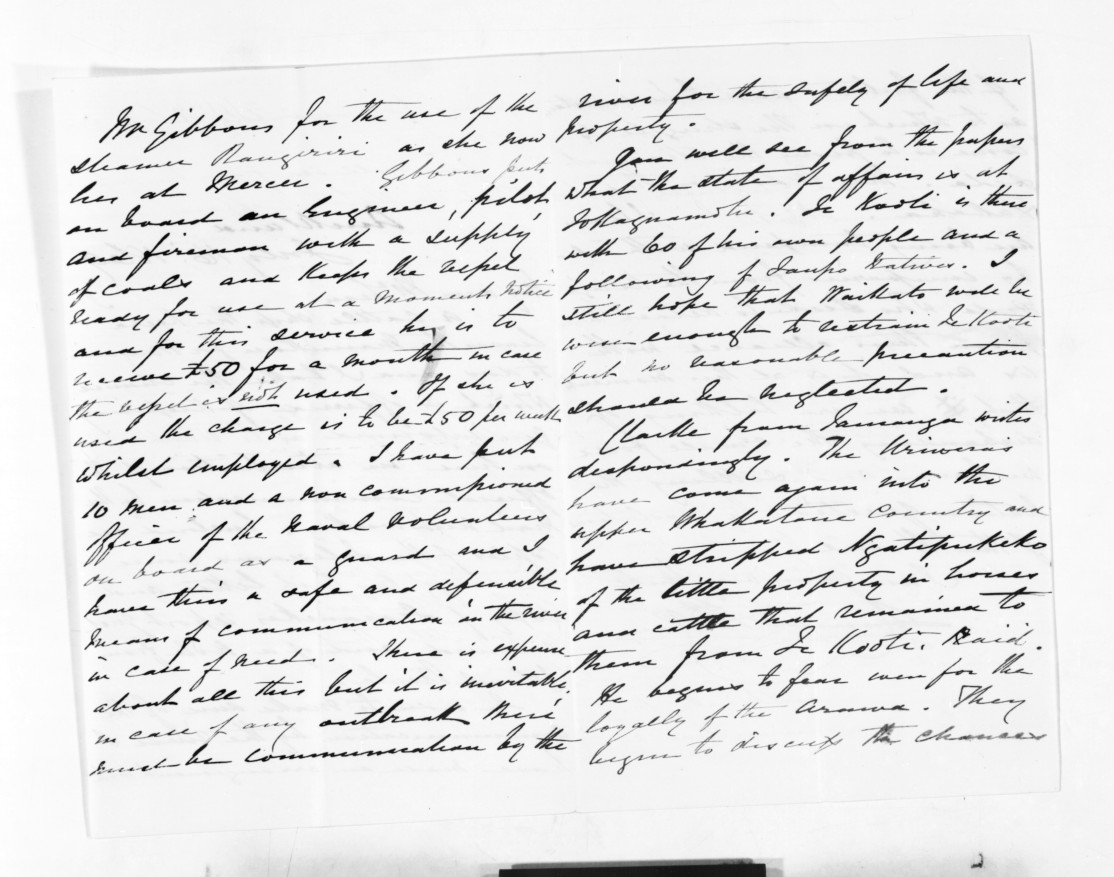 Mr Gibbons for the use of the
steamer Rangiriri as she now
lies at Mercer. Gibbons puts
on board an Engineer, pilot
and fireman with a supply
of coals and keeps the vessel
ready for use at a moments notice
and for this service he is to
receive £50 for a month in case
the vessel is not used. If she is
used the charge is to be £50 per week
whilst employed. I have put
10 men and a non commissioned
officer of the Naval Volunteers
on board as a guard and I
have thus a safe and defensible
means of communication in the river
in case of need. There is expense
about all this but it is inevitable,
in case of any outbreak there
must be communication by the
river for the safety of life and
property.
You will see from the papers
what the state of affairs is at
Tokagnamutu. Te Kooti is there
with 60 of his own people and a
following of Taupo Natives. I
still hope that Waikato will be
wise enough to restrain Te Kooti
but no reasonable precaution
should be neglected.
Clarke from Tauranga writes
despondingly. The Uriweras
have come again into the
upper Whakatane country and
have stripped Ngatipukeko
of the little property in horses
and cattle that remained to
them from Te Kooti's Raid.
He begins to fear even for the
loyalty of the Arawa. They
begin to discuss the chances